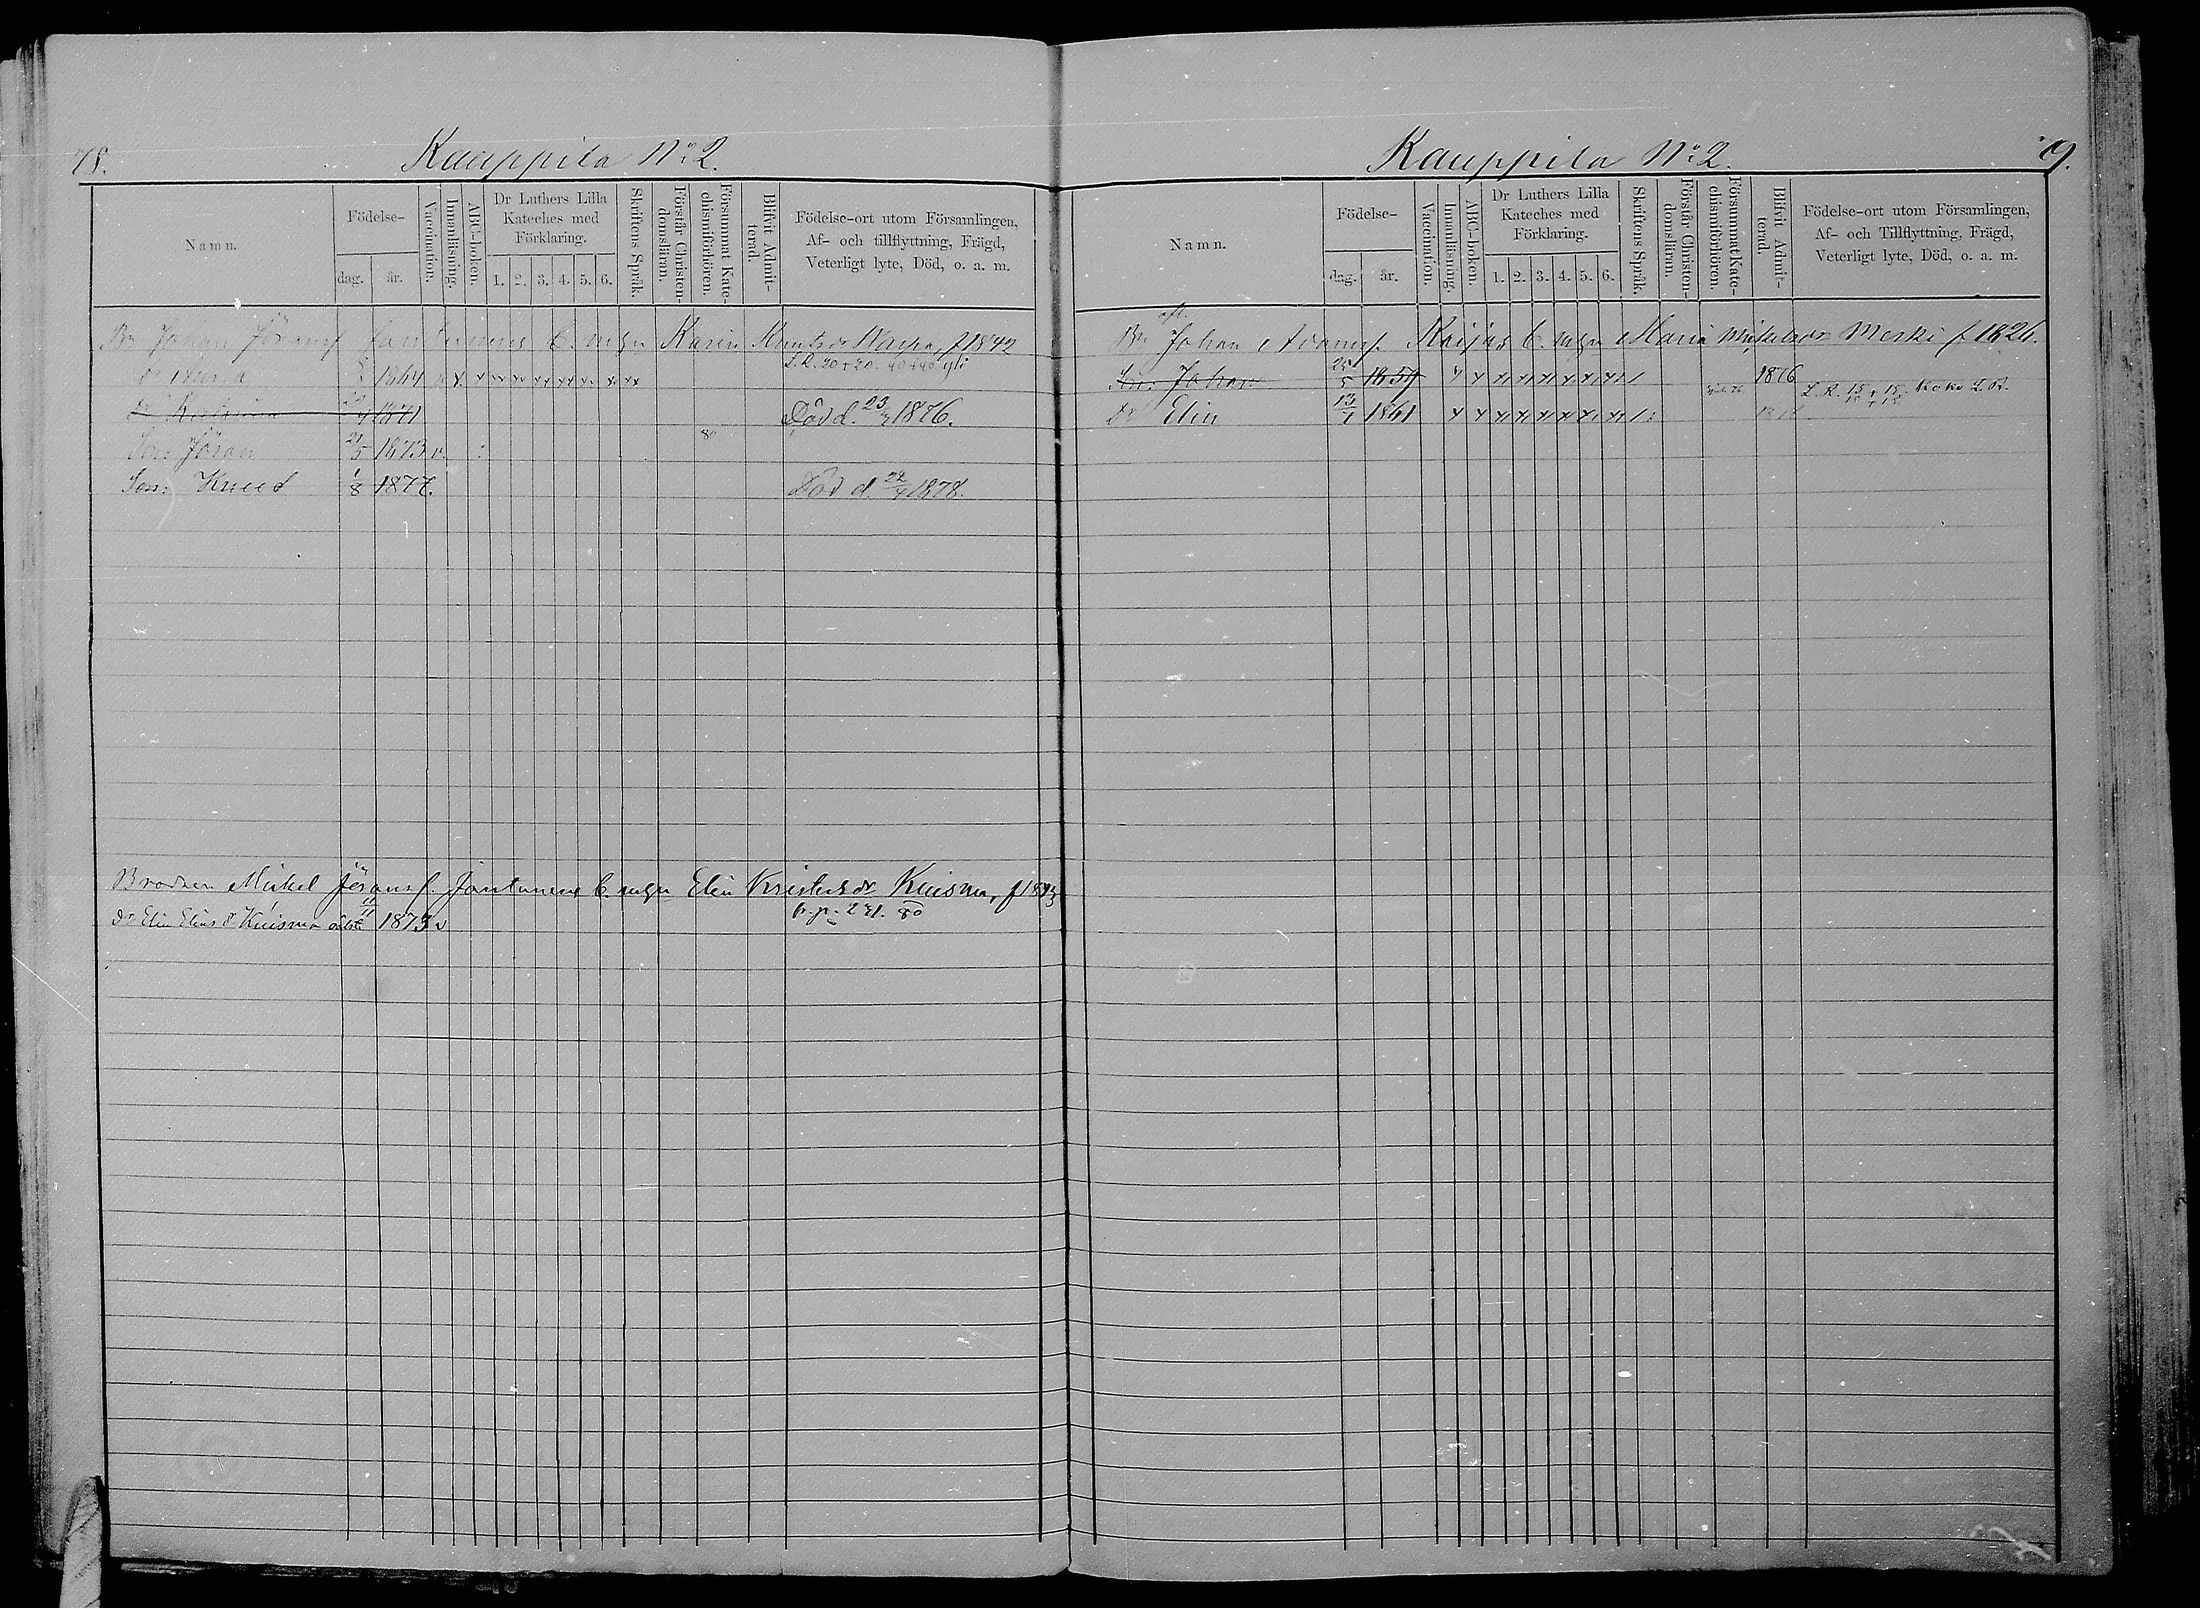 78.
Kauppila No 2.
Namn.
Födelse-
dag.
år.
Vaccination.
Innanläsning.
ABC-boken.
Dr Luthers Lilla
Kateches med
Förklaring.
1. 2. 3. 4. 5. 6.
Skriftens Språk.
Förstår Christen-
domsläran.
Försummat Kate-
chismiförhören.
Blifvit Admit-
terad.
Födelse-ort utom Församlingen,
Af- och tillflyttning, Frägd,
Veterligt lyte, Död, o. a. m.
Bn Johan Göransf. Jantunens b. m hu Karin f 1842
dr Maria 1864 v x x xx xx xx xx xx xx xx
1871 Död d. 23 1876.
Son: Jöran 21/5 1873 v.
Son: Knud 1/8 1877. Död d. 22/4 1878.
Brodren Mikel Göransf. Jantunens b. m hu Elin Kristersdr Kuisma, f 1843
dr Elin Elias d Kuisma 11/11 1873 v
Kauppila No 2.
79.
Namn.
Födelse-
dag.
år.
Vaccination.
Innanläsning.
ABC-boken.
Dr Luthers Lilla
Kateches med
Förklaring.
1. 2. 3. 4. 5. 6.
Skriftens Språk.
Förstår Christen-
domsläran.
Försummat Kate-
chismiförhören.
Blifvit Admit-
terad.
Födelse-ort utom Församlingen,
Af- och Tillflyttning, Frägd,
Veterligt lyte, Död, o. a. m.
afl.
Bn Johan Adamsf. Raijas b. m hu Maria Mikelsdr Merki f 1826.
Son: Johan 25/5 1859 1876
Dr Elin 13/1 1861